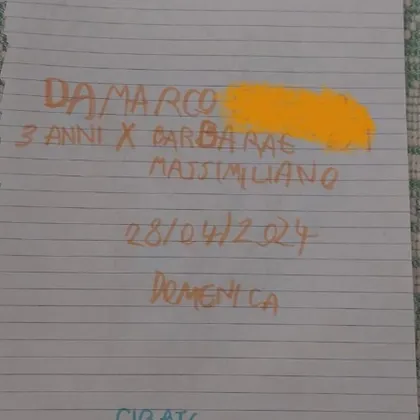 DA MARCO
3 ANNI X BARBARA E
MASSIMILIANO
28/04/2024
DOMENICA